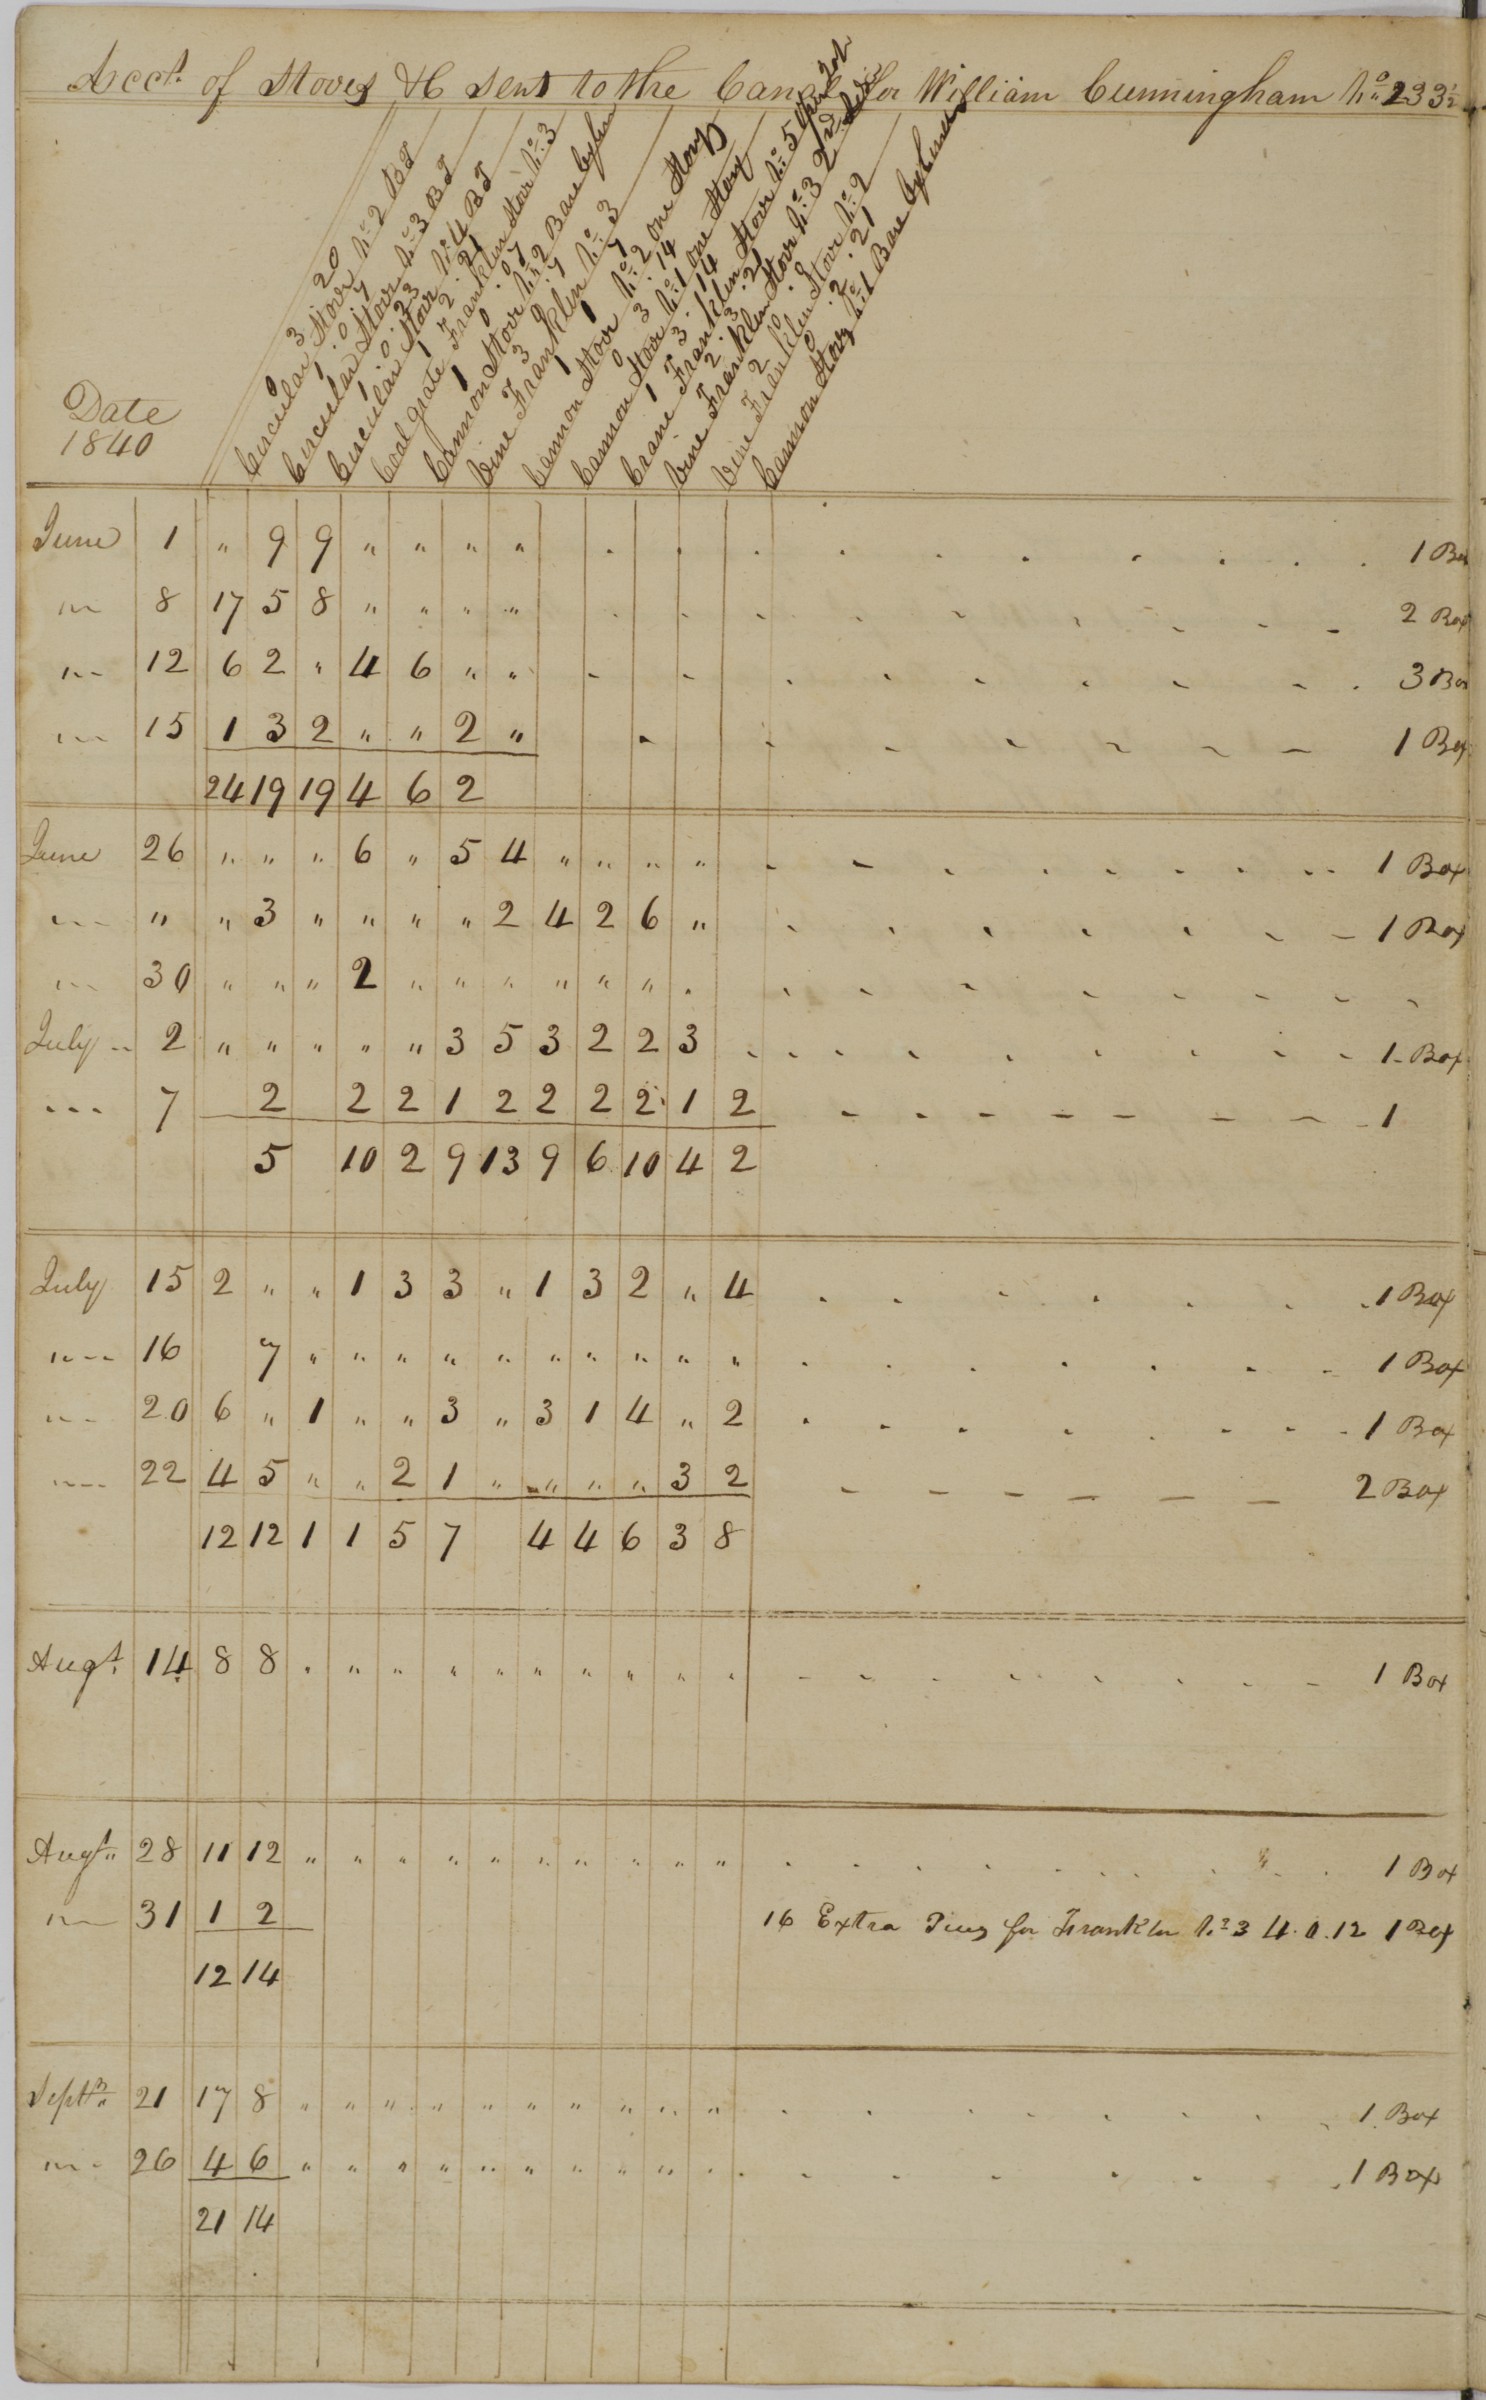 Acct. of Stoves &C sent to the Canal for William Cunningham No 233½
Date
1840
Circular Stove No 2 BT
0 3 20
Circular Stove No 3 BT
1 . 0 . 7
Circular Stove No 4 BT
1 0 . 23
Coal grate Franklin Stove No 3
1 2 . 21
Cannon Stove No 2 Base Cylen
1 0 . 07
Vine Franklin No 3
3 0 7
Cannon Stove No 2 one Story
1 1 7
Cannon Stove No 1 one Story
0 3 . 14
Crane Franklin Stove No 5
1 3 . 14
Vine Franklin Stove No 3
2 . 3 . 21
Vine Franklin Stove No 2
2 0 . 0
Cannon Story No 1 Base Cylinder
0 . 2 . 21
June 1 " 9 9 " " " " 1 Box
" 8 17 5 8 " " " " 2 Box
" 12 6 2 " 4 6 " " 3 Box
" 15 1 3 2 " " 2 " 1 Box
24 19 19 4 6 2
June 26 " " " 6 " 5 4 " " " " 1 Box
" " " 3 " " " " 2 4 2 6 " 1 Box
" 30 " " " 2 " " " " " " "
July 2 " " " " " 3 5 3 2 2 3 1 Box
" 7 2 2 2 1 2 2 2 2 1 2 1
5 10 2 9 13 9 6 10 4 2
July 15 2 " " 1 3 3 " 1 3 2 " 4 1 Box
" 16 7 " " " " " " " " " " 1 Box
" 20 6 " 1 " " 3 " 3 1 4 " 2 1 Box
" 22 4 5 " " 2 1 " " " " 3 2 2 Box
12 12 1 1 5 7 4 4 6 3 8
Augt. 14 8 8 " " " " " " " " " " 1 Box
Augt. 28 11 12 " " " " " " " " " " 1 Box
" 31 1 2 16 Extra for Franklin No 3 4 . 0 . 12 1 Box
12 14
Septr. 21 17 8 " " " " " " " " " " 1 Box
" 26 4 6 " " " " " " " " " " 1 Box
21 14